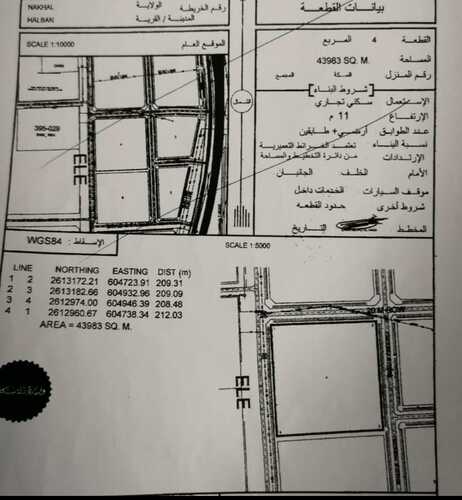 NAKHAL
الولاية
رقم الخريطة
HALBAN
المدينة / القرية
SCALE 1:10000
الموقع العام
395-029
ELE
الشمال
بيانات القطعة
القطعة 4 المربع
المساحة 43983 SQ. M.
رقم المنزل السكة المجمع
شروط البناء
الإستعمال سكني تجاري
الإرتفاع 11 م
عدد الطوابق أرضي + طابقين
نسبة البناء تعتمد الخرائط المعمارية
الإرتدادات من دائرة التخطيط والمساحة
الأمام الخلف الجانبان
موقف السيارات الخدمات داخل
شروط أخرى حدود القطعه
المخطط التاريخ
الإسقاط : WGS84
SCALE 1:5000
LINE NORTHING EASTING DIST (m)
1 2 2613172.21 604723.91 209.31
2 3 2613182.66 604932.96 209.09
3 4 2612974.00 604946.39 208.48
4 1 2612960.67 604738.34 212.03
AREA = 43983 SQ. M.
20 M ROW
ELE